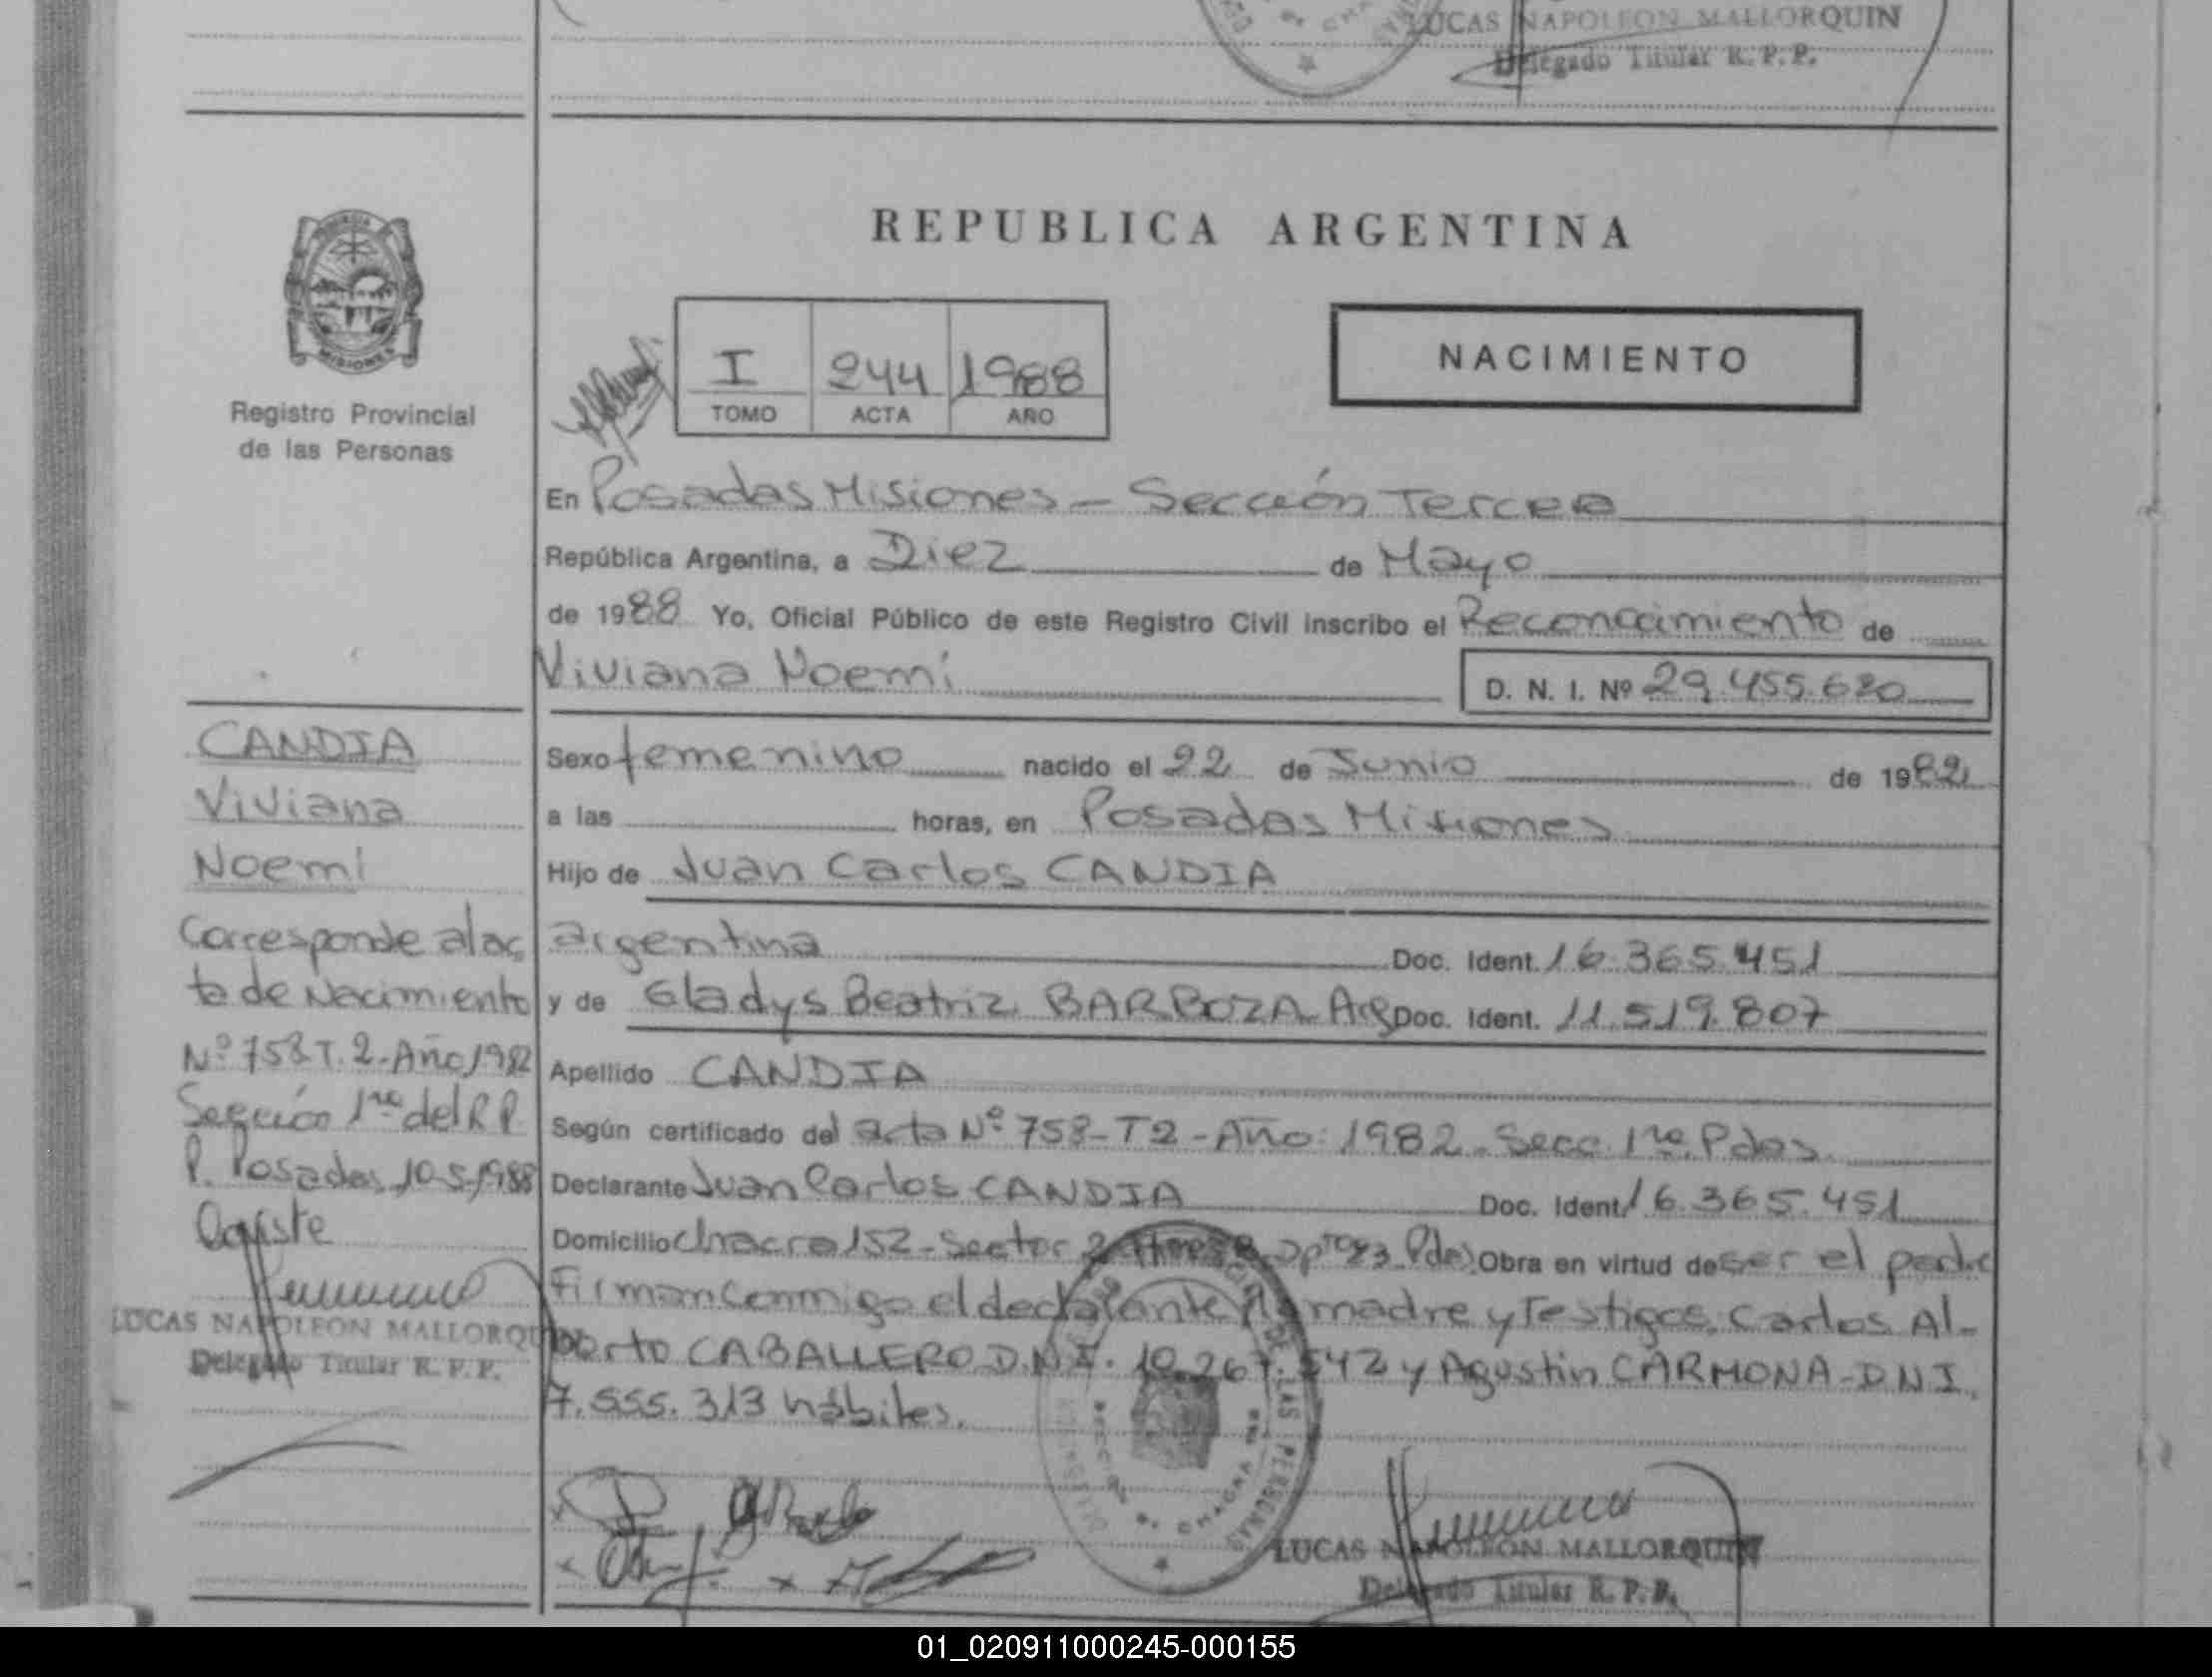 LUCAS NAPOLEON MALLORQUIN
Delegado Titular R. P. P.
REPUBLICA ARGENTINA
MISIONES
Registro Provincial
de las Personas
I 244 1988
TOMO ACTA AÑO
NACIMIENTO
En Posadas Misiones – Sección Tercera
República Argentina, a Diez de Mayo
de 1988 Yo, Oficial Público de este Registro Civil inscribo el Reconocimiento de
Viviana Noemí D. N. I. Nº 29.455.620
CANDIA
Viviana
Noemí
Corresponde al ac
ta de Nacimiento
Nº 758 T. 2 - Año 1982
Sección 1ra del R P
P. Posadas, 10-5-1988
Conste
LUCAS NAPOLEON MALLORQUIN
Delegado Titular R. P. P.
Sexo femenino nacido el 22 de Junio de 1982
a las horas, en Posadas Misiones
Hijo de Juan Carlos CANDIA
argentina Doc. Ident. 16.365.451
y de Gladys Beatriz BARBOZA Arg Doc. Ident. 11.519.807
Apellido CANDIA
Según certificado del acta Nº 758 - T2 - Año: 1982 - Secc. 1ra. Pdas.
Declarante Juan Carlos CANDIA Doc. Ident. 16.365.451
Domicilio Chacra 152 - Sector 2 Dpto 23 Pdas. Obra en virtud de ser el padre
Firman conmigo el declarante la madre y Testigos. Carlos Al-
berto CABALLERO D.N.I. 10.267.542 y Agustin CARMONA - D N I.
7.555.313 hábiles.
LUCAS NAPOLEON MALLORQUIN
Delegado Titular R. P. P.
01_020911000245-000155